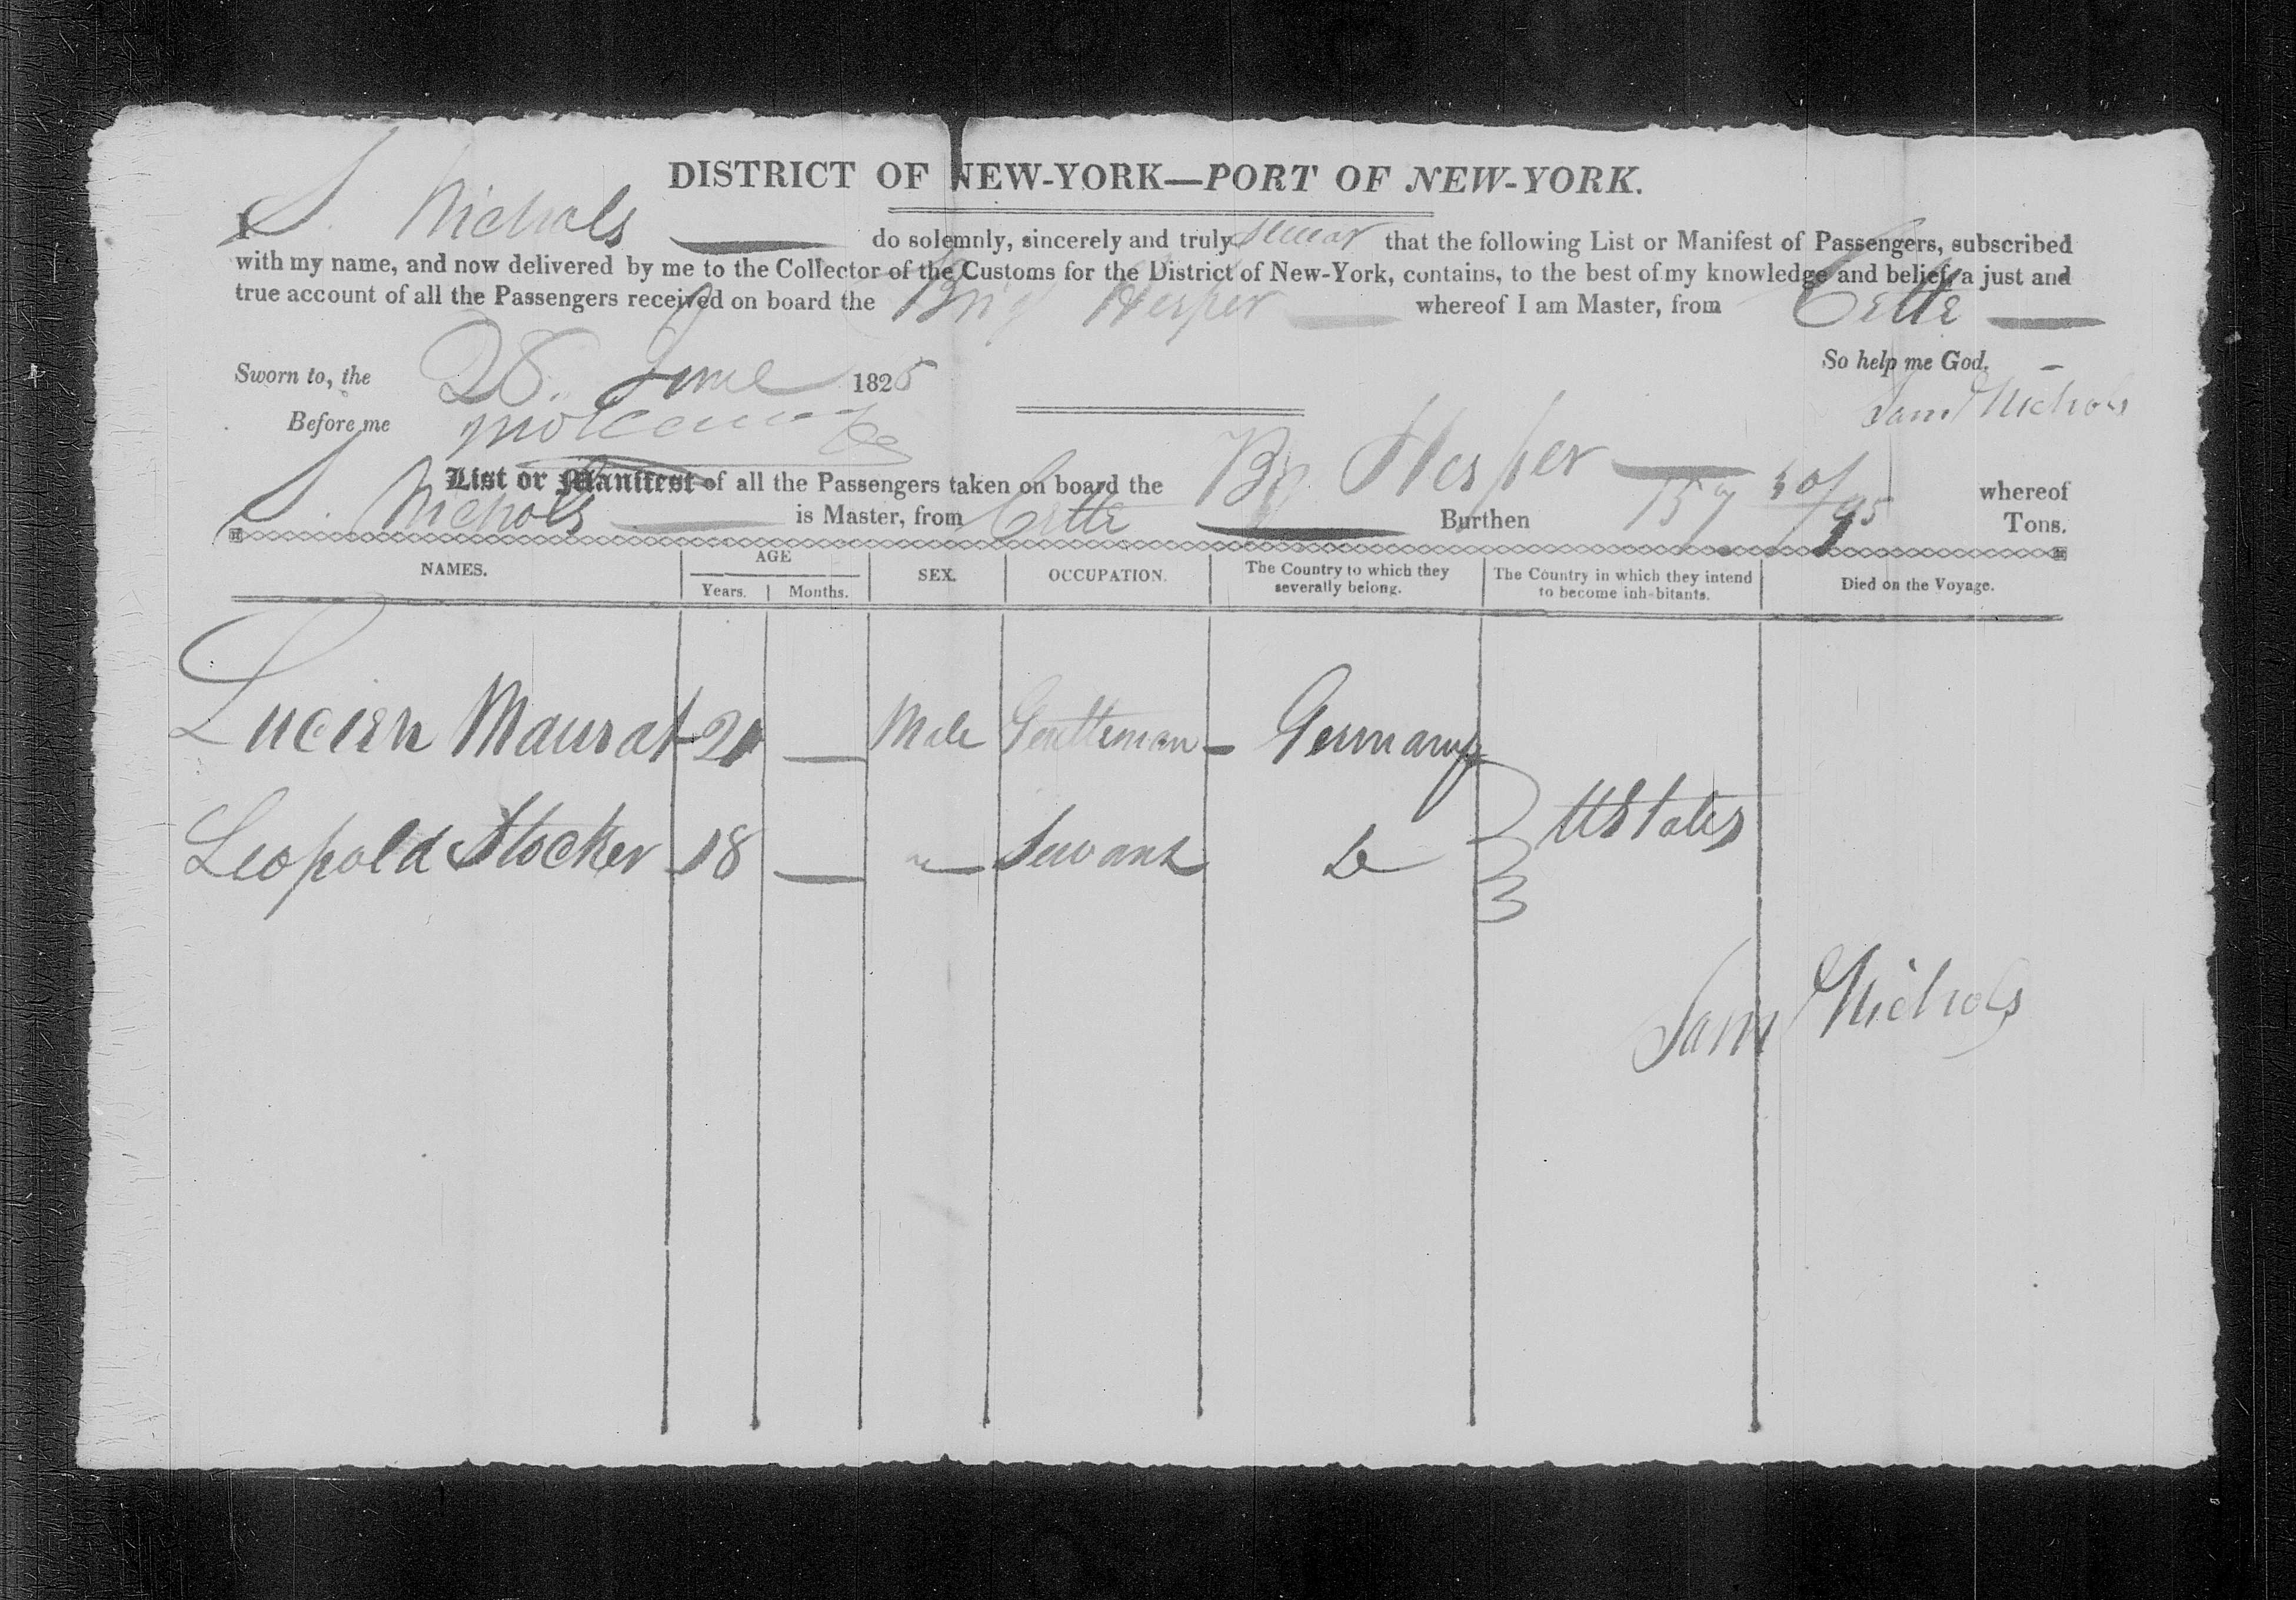 DISTRICT OF NEW-YORK—PORT OF NEW-YORK.
I S. Nichols do solemnly, sincerely and truly swear that the following List or Manifest of Passengers, subscribed
with my name, and now delivered by me to the Collector of the Customs for the District of New-York, contains, to the best of my knowledge and belief, a just and
true account of all the Passengers received on board the Brig Hesper whereof I am Master, from Cette
So help me God.
Sworn to, the 28. June 1825
Sam Nichols
Before me
List or Manifest of all the Passengers taken on board the Bg Hesper whereof
S. Nichols is Master, from Cette Burthen 157 50/95 Tons.
NAMES. AGE SEX. OCCUPATION. The Country to which they severally belong. The Country in which they intend to become inhabitants. Died on the Voyage.
Years. Months.
Lucien Maurat 21 — Male Gentleman - Germany
UStates
Leopold Stocker 18 — " Servant Do
Sam Nichols